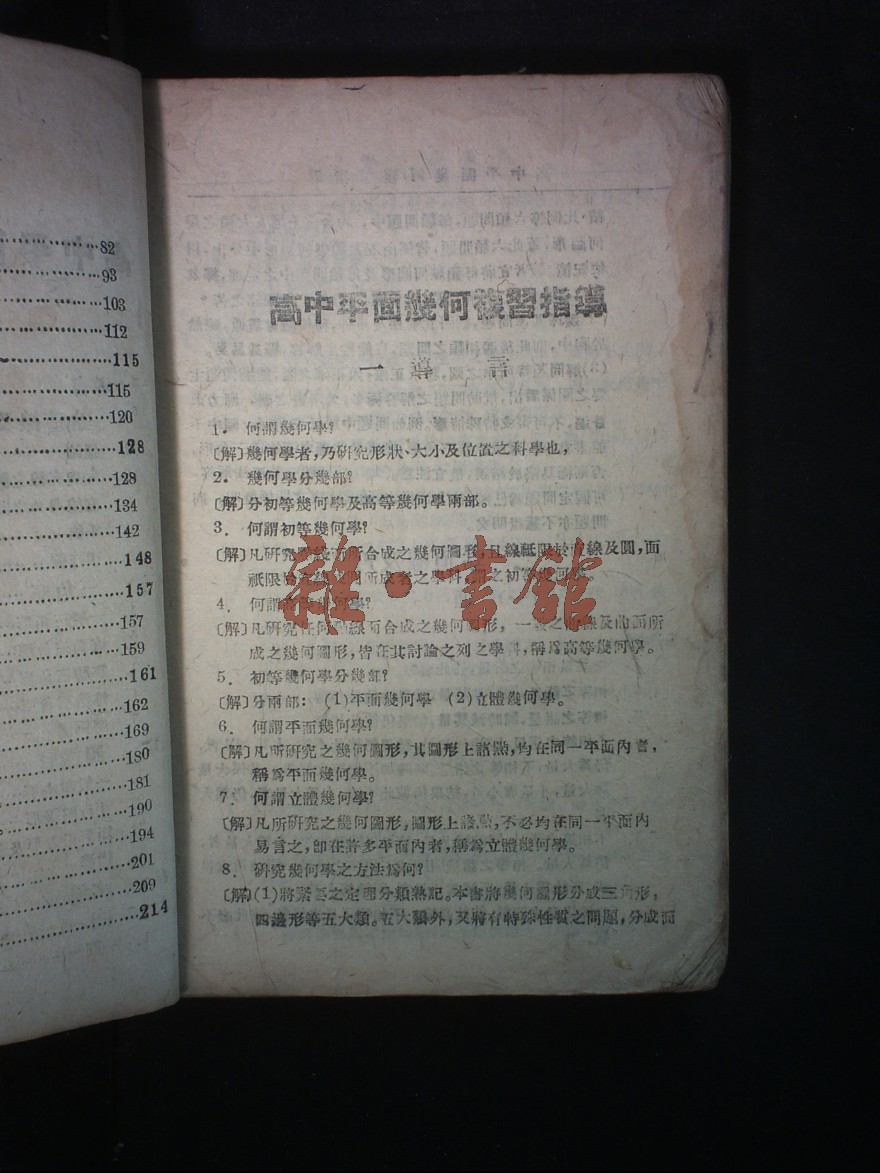 82
93
103
112
115
115
120
128
128
134
142
148
157
157
159
161
162
169
180
181
190
194
201
209
214
高中平面幾何複習指導
一 導 言
1. 何謂幾何學?
〔解〕幾何學者,乃研究形狀、大小及位置之科學也,
2. 幾何學分幾部?
〔解〕分初等幾何學及高等幾何學兩部。
3. 何謂初等幾何學?
〔解〕凡研究 所合成之幾何圖形,且線祇限於直線及圓,面
祇限 所成者之學科, 之初等幾何學。
4. 何謂 幾何學?
〔解〕凡研究任何點線而合成之幾何圖形, 一 線及曲面所
成之幾何圖形,皆在其討論之列之學科,稱爲高等幾何學。
5. 初等幾何學分幾部?
〔解〕分兩部: (1)平面幾何學 (2)立體幾何學。
6. 何謂平面幾何學?
〔解〕凡所研究之幾何圖形,其圖形上諸點,均在同一平面內者,
稱爲平面幾何學。
7. 何謂立體幾何學?
〔解〕凡所研究之幾何圖形,圖形上諸點,不必均在同一平面內
易言之,卽在許多平面內者,稱爲立體幾何學。
8. 研究幾何學之方法爲何?
〔解〕(1)將緊要之定理分類熟記。本書將幾何圖形分成三角形,
四邊形等五大類。五大類外,又將有特殊性質之問題,分成面
雜·書館